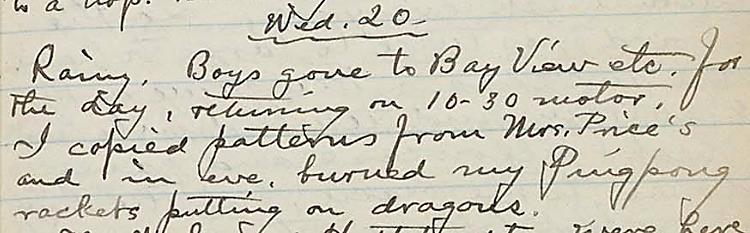 to a hop.
Wed. 20
Rainy. Boys gone to Bay View etc. for
the day, returning on 10-30 motor.
I copied patterns from Mrs. Price's
and in eve. burned my Pingpong
rackets putting on dragons.
were here